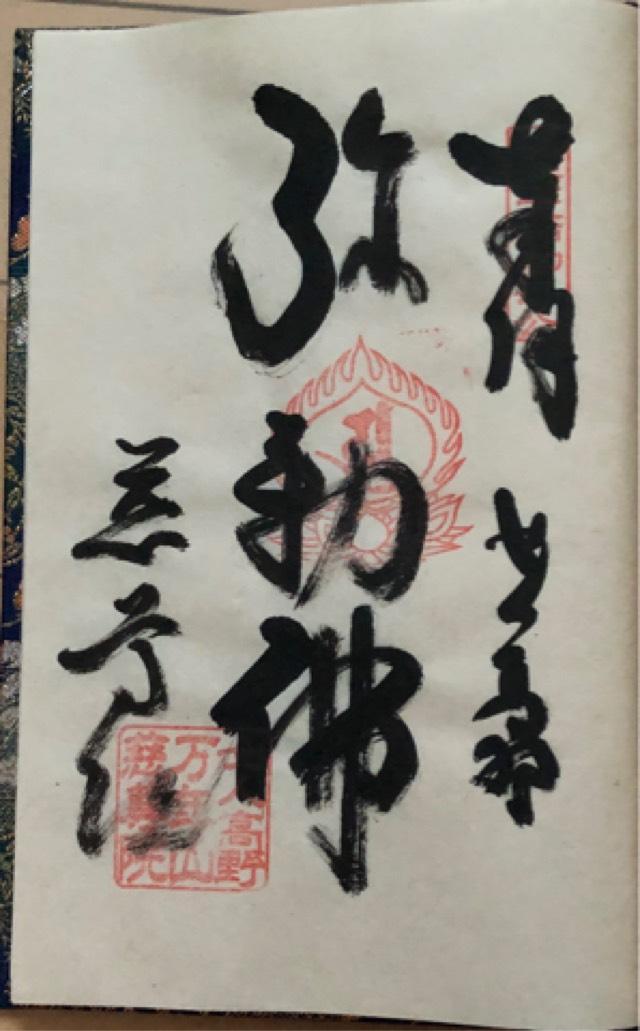 女人高野
弥勒佛
慈尊院
女人高野
万年山
慈尊院